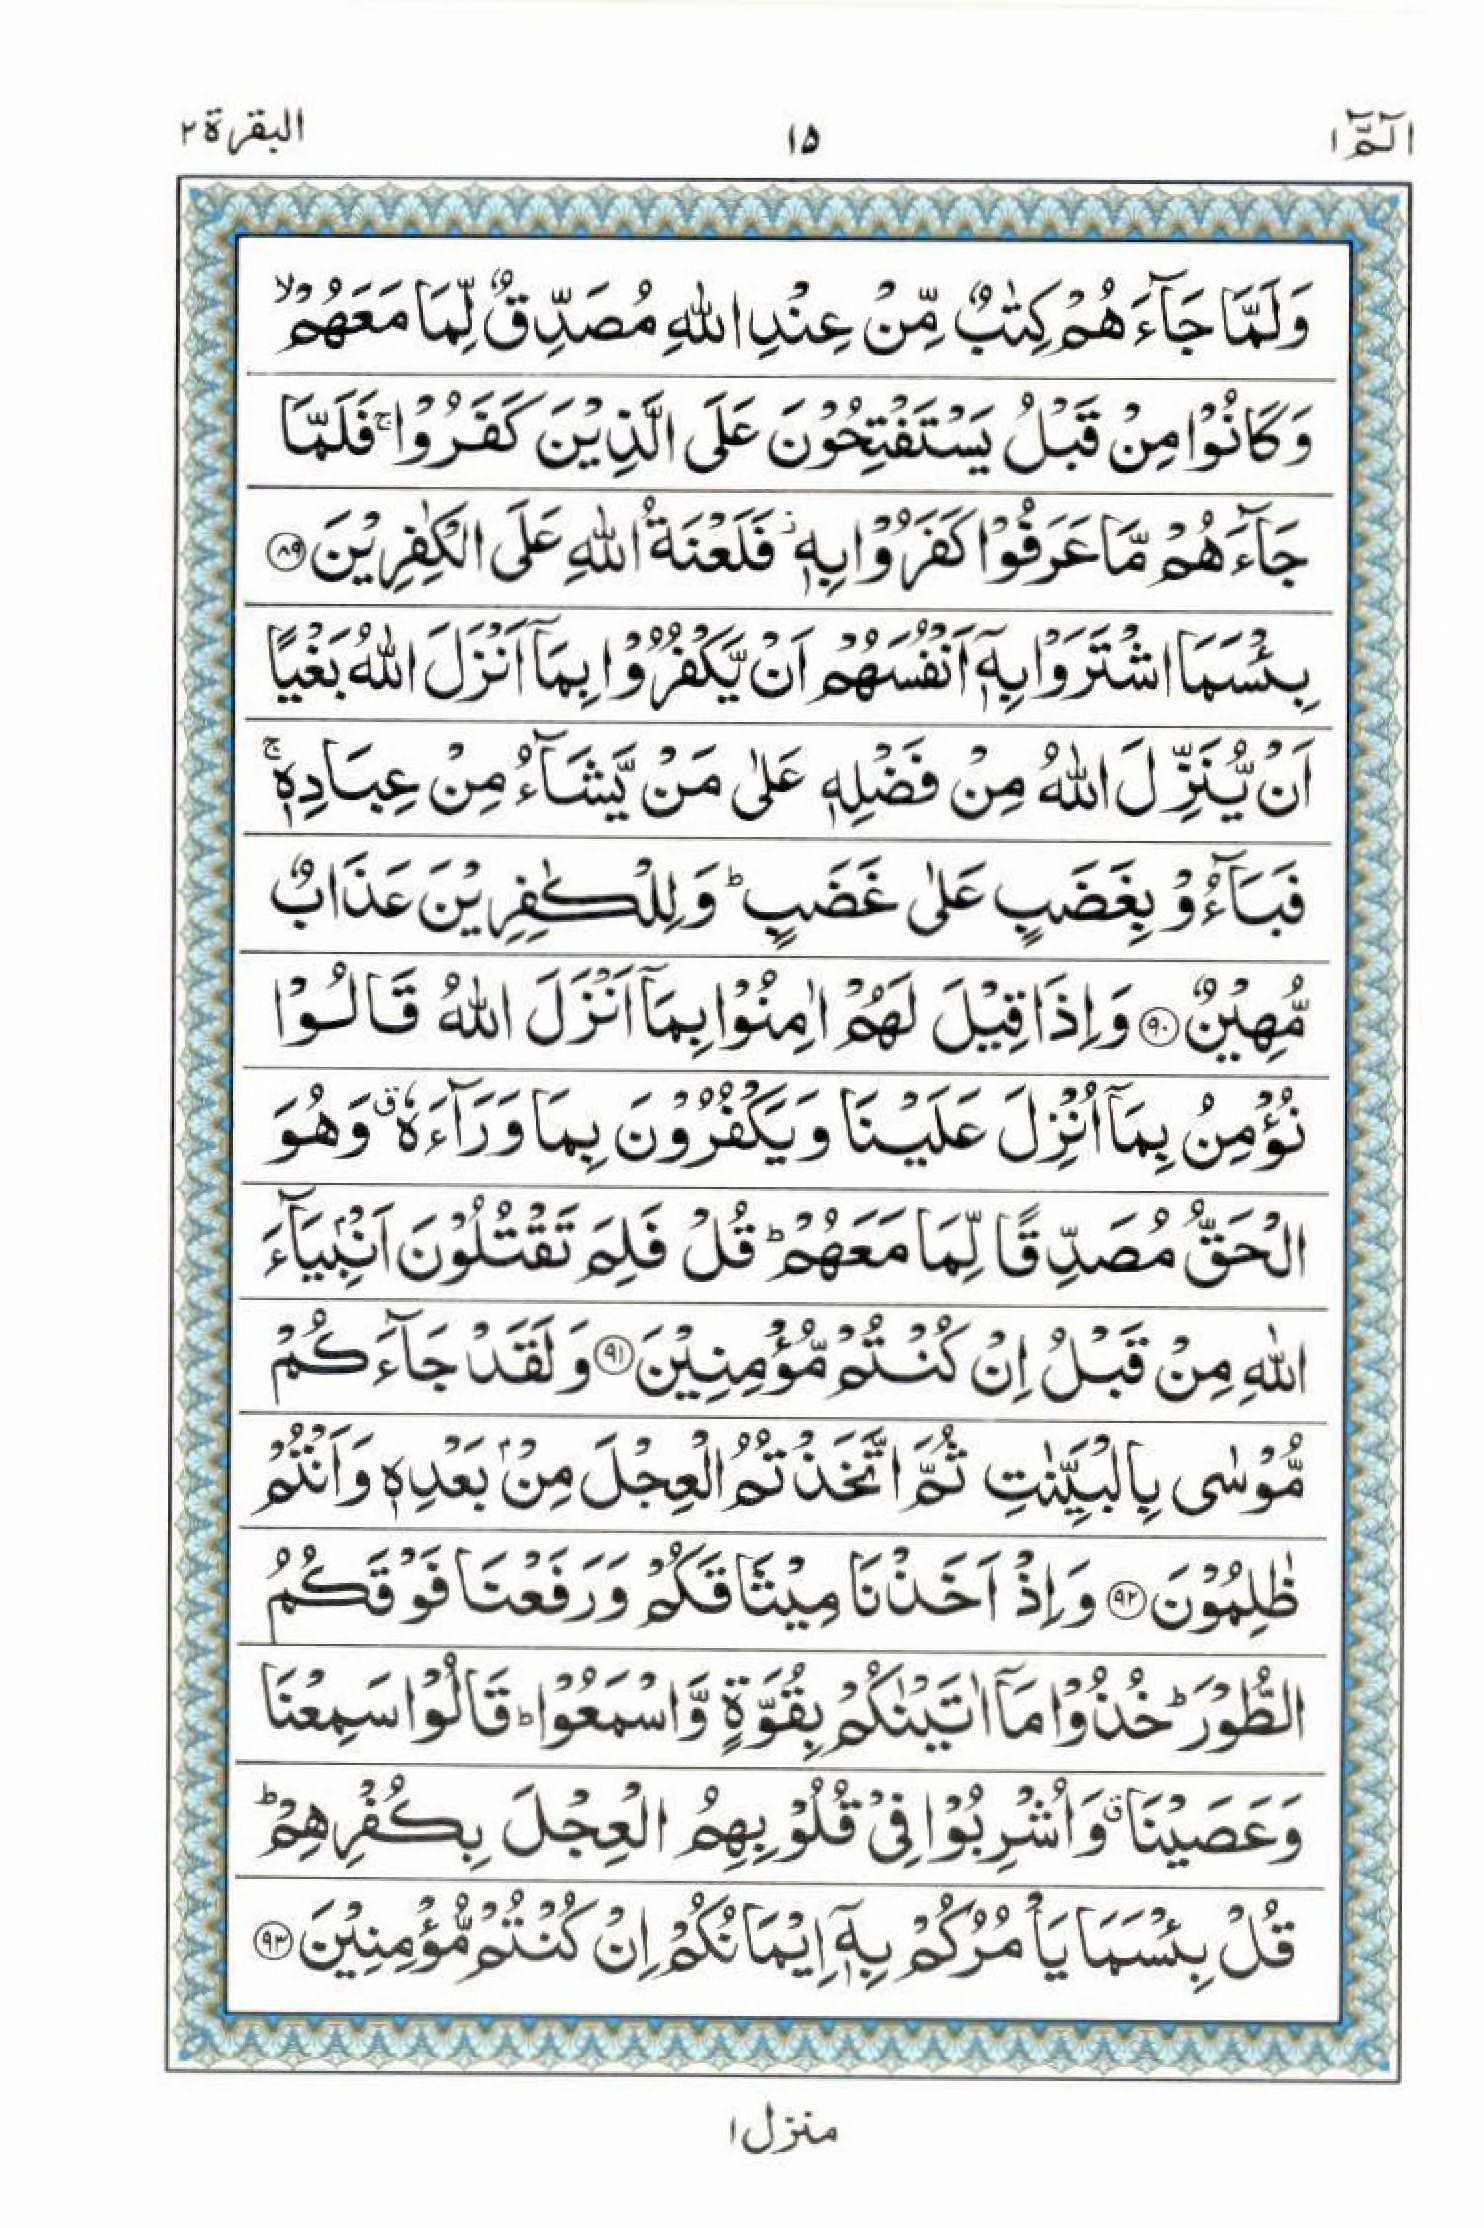 الٓمّٓ ١ ١٥ البقرة ٢
وَلَمَّا جَآءَهُمْ كِتٰبٌ مِّنْ عِنْدِ اللّٰهِ مُصَدِّقٌ لِّمَا مَعَهُمْ ۙ
وَكَانُوْا مِنْ قَبْلُ يَسْتَفْتِحُوْنَ عَلَى الَّذِيْنَ كَفَرُوْا ۚ فَلَمَّا
جَآءَهُمْ مَّا عَرَفُوْا كَفَرُوْا بِهٖ ۡ فَلَعْنَةُ اللّٰهِ عَلَى الْكٰفِرِيْنَ ﴿٨٩﴾
بِئْسَمَا اشْتَرَوْا بِهٖٓ اَنْفُسَهُمْ اَنْ يَّكْفُرُوْا بِمَآ اَنْزَلَ اللّٰهُ بَغْيًا
اَنْ يُّنَزِّلَ اللّٰهُ مِنْ فَضْلِهٖ عَلٰى مَنْ يَّشَآءُ مِنْ عِبَادِهٖ ۚ
فَبَآءُوْ بِغَضَبٍ عَلٰى غَضَبٍ ؕ وَلِلْكٰفِرِيْنَ عَذَابٌ
مُّهِيْنٌ ﴿٩٠﴾ وَاِذَا قِيْلَ لَهُمْ اٰمِنُوْا بِمَآ اَنْزَلَ اللّٰهُ قَالُوْا
نُؤْمِنُ بِمَآ اُنْزِلَ عَلَيْنَا وَيَكْفُرُوْنَ بِمَا وَرَآءَهٗ ق وَهُوَ
الْحَقُّ مُصَدِّقًا لِّمَا مَعَهُمْ ؕ قُلْ فَلِمَ تَقْتُلُوْنَ اَنْۢبِيَآءَ
اللّٰهِ مِنْ قَبْلُ اِنْ كُنْتُمْ مُّؤْمِنِيْنَ ﴿٩١﴾ وَلَقَدْ جَآءَكُمْ
مُّوْسٰى بِالْبَيِّنٰتِ ثُمَّ اتَّخَذْتُمُ الْعِجْلَ مِنْۢ بَعْدِهٖ وَاَنْتُمْ
ظٰلِمُوْنَ ﴿٩٢﴾ وَاِذْ اَخَذْنَا مِيْثَاقَكُمْ وَرَفَعْنَا فَوْقَكُمُ
الطُّوْرَ ؕ خُذُوْا مَآ اٰتَيْنٰكُمْ بِقُوَّةٍ وَّاسْمَعُوْا ؕ قَالُوْا سَمِعْنَا
وَعَصَيْنَا ق وَاُشْرِبُوْا فِيْ قُلُوْبِهِمُ الْعِجْلَ بِكُفْرِهِمْ ؕ
قُلْ بِئْسَمَا يَاْمُرُكُمْ بِهٖٓ اِيْمَانُكُمْ اِنْ كُنْتُمْ مُّؤْمِنِيْنَ ﴿٩٣﴾
منزل ١